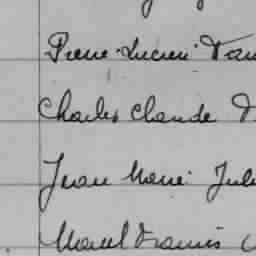 Pierre Lucien
Charles Claude
Jean Marie Jul
Marcel Francis